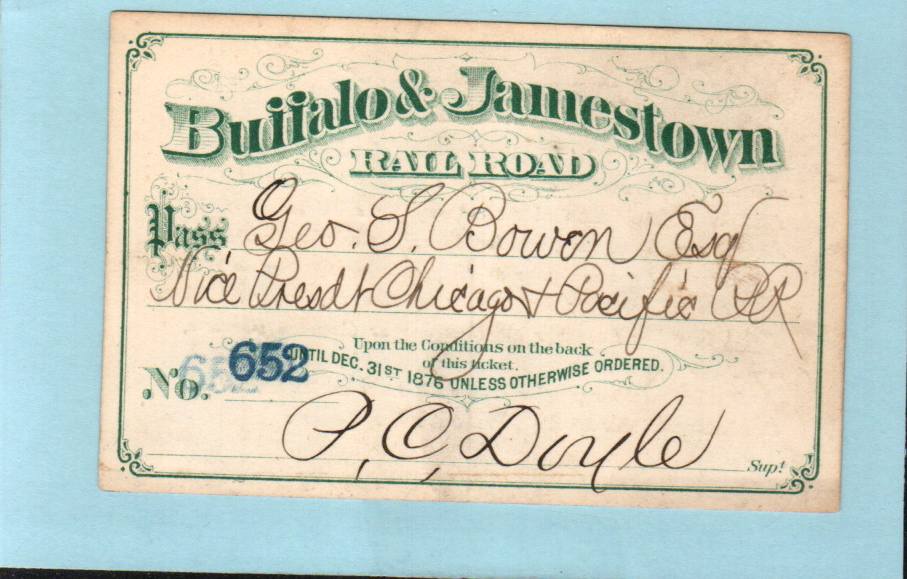 Buffalo & Jamestown
RAIL ROAD
Pass Geo. S. Bowen Esq
Vice Presdt Chicago & Pacific RR
Upon the Conditions on the back
of this ticket.
UNTIL DEC. 31ST 1876 UNLESS OTHERWISE ORDERED.
No. 652
P. C. Doyle
Supt